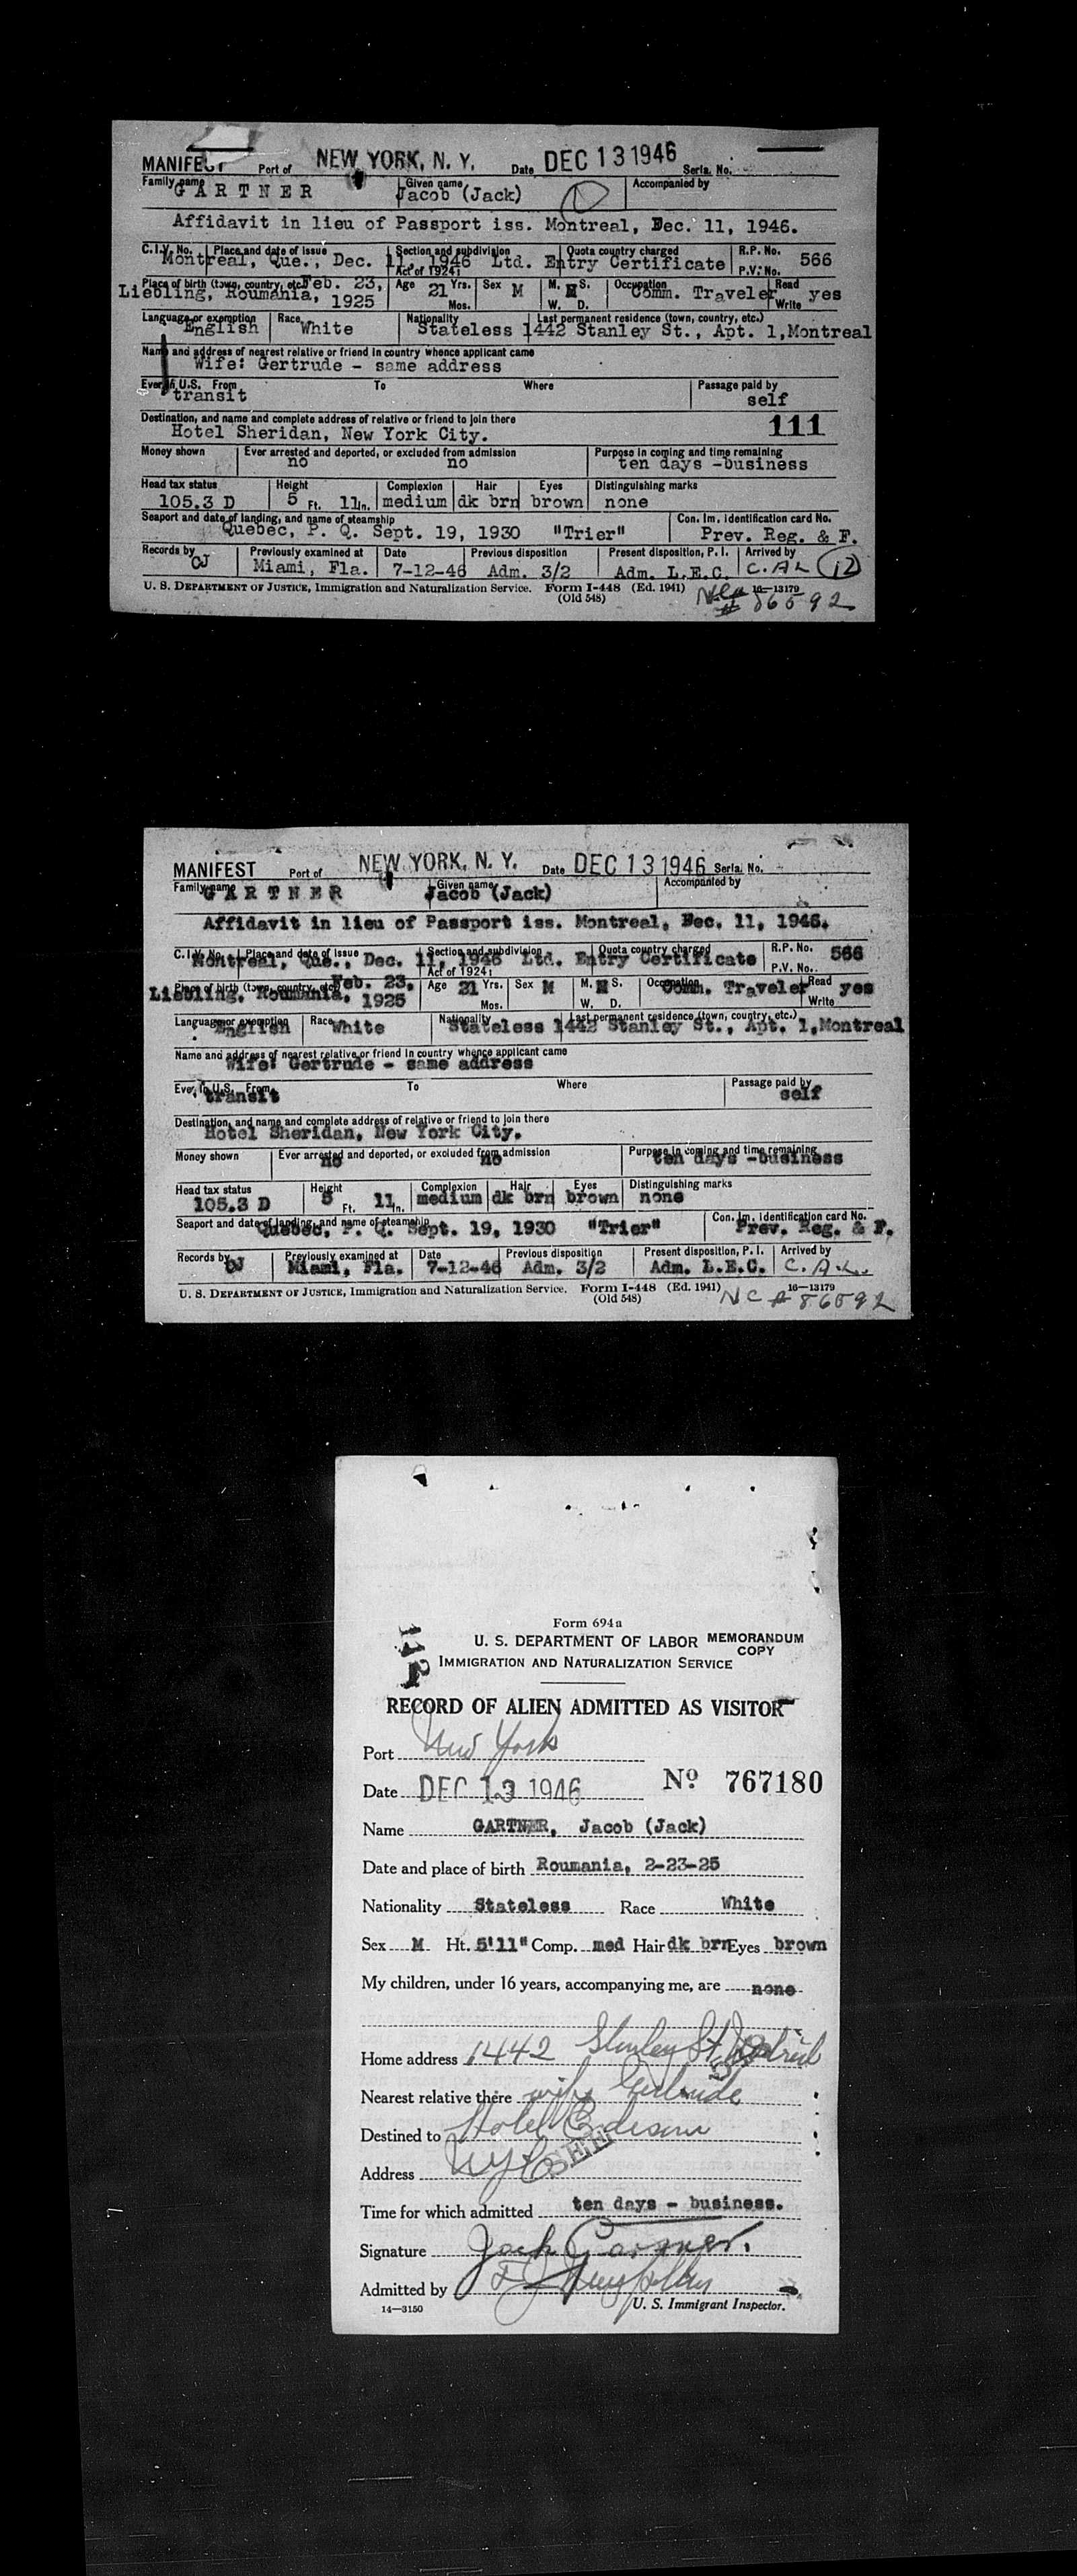 MANIFEST Port of NEW YORK, N. Y. Date DEC 13 1946 Serial No.
Family name GARTNER Given name Jacob (Jack) Accompanied by
Affidavit in lieu of Passport iss. Montreal, Dec. 11, 1946.
C.I.V. No. Place and date of issue Section and subdivision Quota country charged R.P. No. 566
Montreal, Que., Dec. 11, 1946 Ltd. Entry Certificate
Act of 1924: P.V. No.
Place of birth (town, country, etc.) Feb. 23, Age 21 Yrs. Sex M M. S. Occupation Read yes
Liebling, Roumania, 1925 Mos. W. D. Comm. Traveler Write
Language or exemption English Race White Nationality Stateless Last permanent residence (town, country, etc.) 1442 Stanley St., Apt. 1, Montreal
Name and address of nearest relative or friend in country whence applicant came
Wife: Gertrude - same address
Ever in U.S. From To Where Passage paid by
transit self
Destination, and name and complete address of relative or friend to join there 111
Hotel Sheridan, New York City.
Money shown Ever arrested and deported, or excluded from admission Purpose in coming and time remaining
no no ten days -business
Head tax status Height Complexion Hair Eyes Distinguishing marks
105.3 D 5 Ft. 11 In. medium dk brn brown none
Seaport and date of landing, and name of steamship Con. Im. identification card No.
Quebec, P. Q. Sept. 19, 1930 "Trier" Prev. Reg. & F.
Records by Previously examined at Date Previous disposition Present disposition, P. I. Arrived by
CJ Miami, Fla. 7-12-46 Adm. 3/2 Adm. L.E.C. C.A.L 12
U. S. DEPARTMENT OF JUSTICE, Immigration and Naturalization Service. Form I-448 (Ed. 1941) 16—13179
(Old 548) # 86592
MANIFEST Port of NEW YORK, N. Y. Date DEC 13 1946 Serial No.
Family name GARTNER Given name Jacob (Jack) Accompanied by
Affidavit in lieu of Passport iss. Montreal, Dec. 11, 1946.
C.I.V. No. Place and date of issue Section and subdivision Quota country charged R.P. No. 566
Montreal, Que., Dec. 11, 1946 Ltd. Entry Certificate
Act of 1924: P.V. No.
Place of birth (town, country, etc.) Feb. 23, Age 21 Yrs. Sex M M. S. Occupation Read yes
Liebling, Roumania, 1925 Mos. W. D. Comm. Traveler Write
Language or exemption English Race White Nationality Stateless Last permanent residence (town, country, etc.) 1442 Stanley St., Apt. 1, Montreal
Name and address of nearest relative or friend in country whence applicant came
Wife: Gertrude - same address
Ever in U.S. From To Where Passage paid by
transit self
Destination, and name and complete address of relative or friend to join there
Hotel Sheridan, New York City.
Money shown Ever arrested and deported, or excluded from admission Purpose in coming and time remaining
no no ten days -business
Head tax status Height Complexion Hair Eyes Distinguishing marks
105.3 D 5 Ft. 11 In. medium dk brn brown none
Seaport and date of landing, and name of steamship Con. Im. identification card No.
Quebec, P. Q. Sept. 19, 1930 "Trier" Prev. Reg. & F.
Records by Previously examined at Date Previous disposition Present disposition, P. I. Arrived by
CJ Miami, Fla. 7-12-46 Adm. 3/2 Adm. L.E.C. C.A.L.
U. S. DEPARTMENT OF JUSTICE, Immigration and Naturalization Service. Form I-448 (Ed. 1941) 16—13179
(Old 548) NC # 86592
Form 694a
U. S. DEPARTMENT OF LABOR MEMORANDUM COPY
IMMIGRATION AND NATURALIZATION SERVICE
112
RECORD OF ALIEN ADMITTED AS VISITOR
Port New York
Date DEC 13 1946 No 767180
Name GARTNER, Jacob (Jack)
Date and place of birth Roumania, 2-23-25
Nationality Stateless Race White
Sex M Ht. 5'11" Comp. med Hair dk brn Eyes brown
My children, under 16 years, accompanying me, are none
Home address 1442 Stanley St, Montreal
Nearest relative there wife Gertrude
Destined to Hotel Edison
Address NYC
Time for which admitted ten days - business.
Signature Jack Gartner.
Admitted by
14—3150 U. S. Immigrant Inspector.